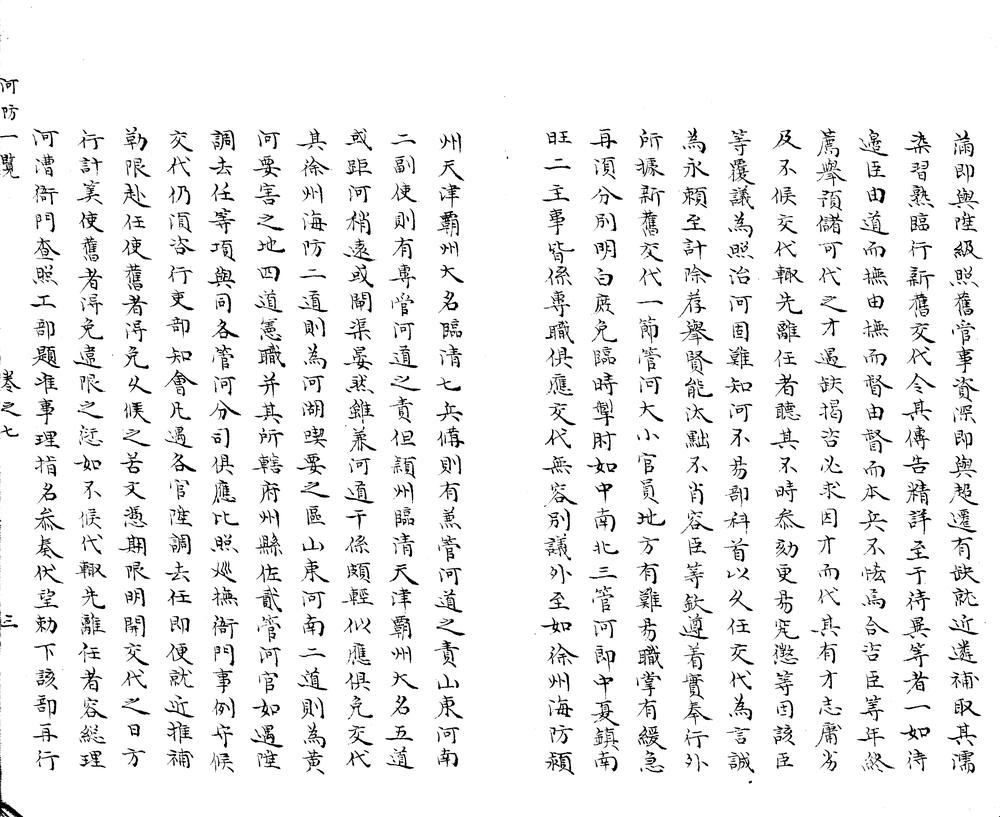 滿即與陞級照舊管事資深即與超遷有缺就近遴補取其濡
染習熟臨行新舊交代令其傳告精詳至于待異等者一如待
邉臣由道而撫由撫而督由督而本兵不恡焉合咨臣等年終
薦舉預儲可代之才遇缺揭咨必求因才而代其有才志庸劣
及不候交代輒先離任者聽其不時叅劾更易究懲等因該臣
等覆議為照治河固難知河不易部科首以久任交代為言誠
為永賴至計除荐舉賢能汰黜不肖容臣等欽遵着實奉行外
所據新舊交代一節管河大小官員地方有難易職掌有緩急
再湏分別明白庻免臨時掣肘如中南北三管河即中夏鎮南
旺二主事皆係專職俱應交代無容別議外至如徐州海防潁
州天津霸州大名臨清七兵備則有兼管河道之責山東河南
二副使則有專管河道之責但潁州臨清天津霸州大名五道
或距河稍遠或閘渠晏然雖兼河道干係頗輕似應俱免交代
其徐州海防二道則為河湖喫要之區山東河南二道則為黃
河要害之地四道憲職并其所轄府州縣佐貳管河官如遇陞
調去任等項與同各管河分司俱應比照廵撫衙門事例守候
交代仍湏咨行吏部知會凡遇各官陞調去任即便就近推補
勒限赴任使舊者淂免久候之苦文憑期限明開交代之日方
行計筭使舊者淂免違限之愆如不候代輒先離任者容總理
河漕衙門查照工部題准事理指名叅奏伏望勅下該部再行
河防一覽
卷之七
三